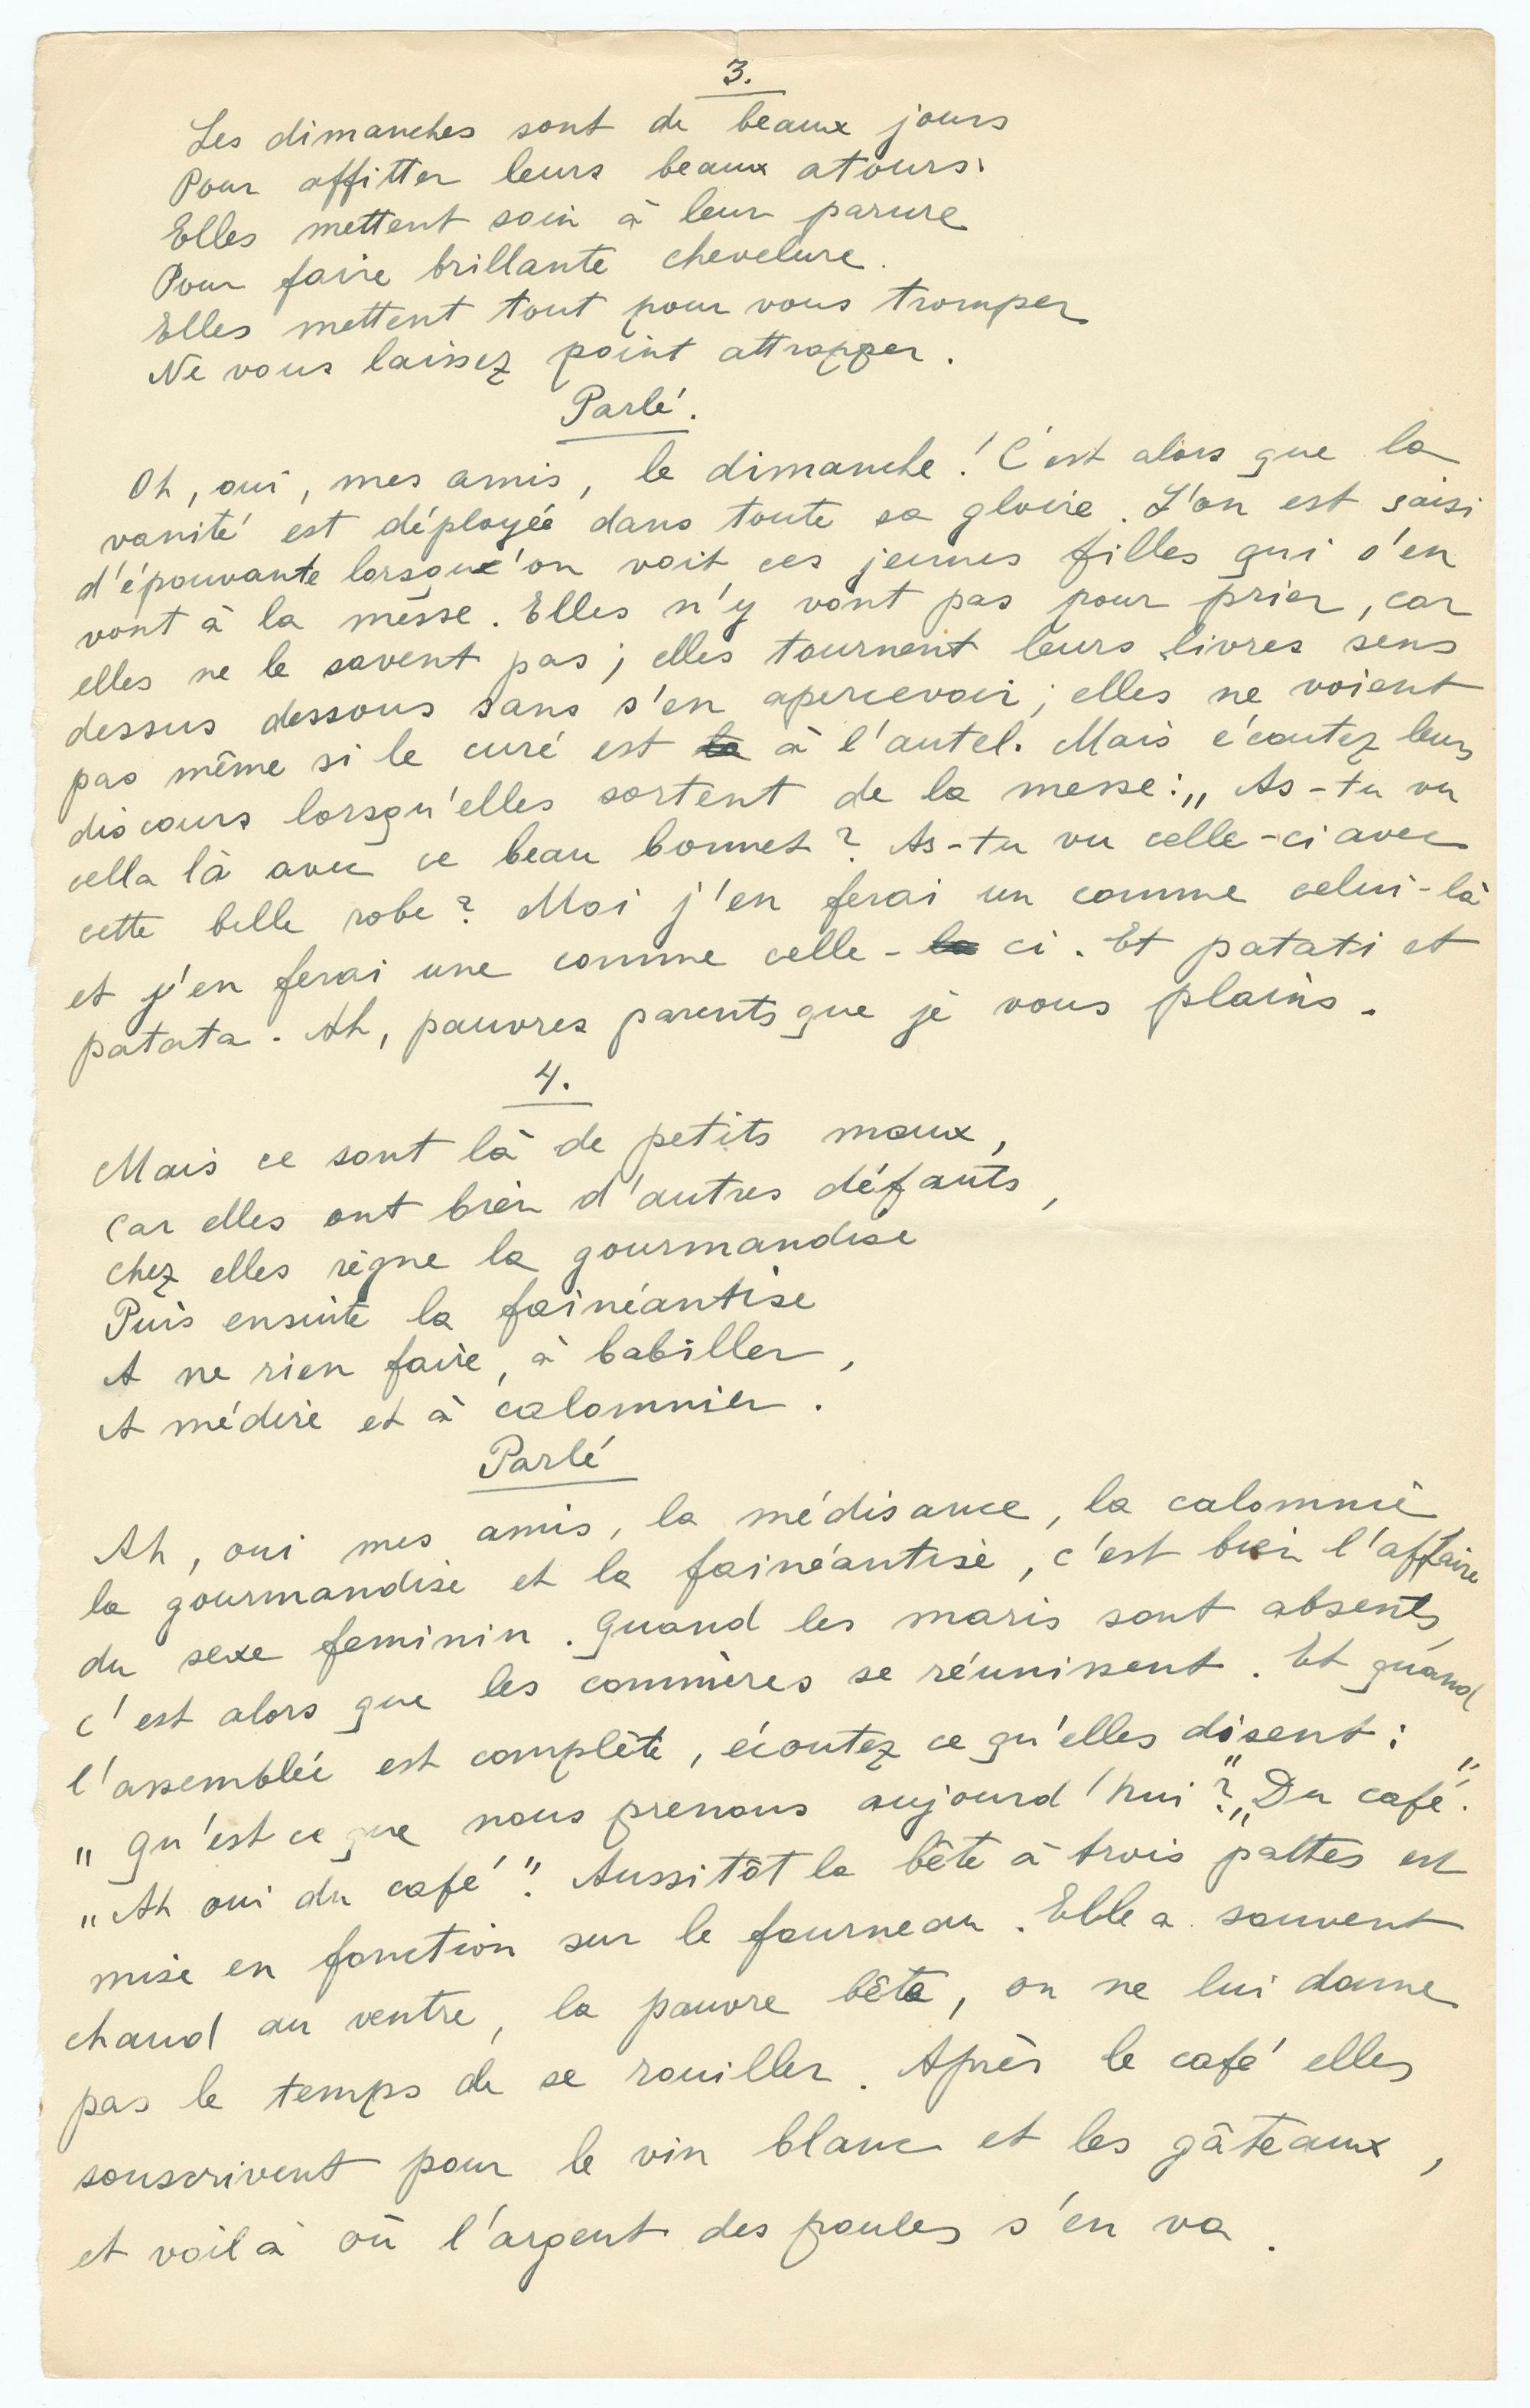 3.
Les dimanches sont de beaux jours
Pour affitter leurs beaux atours.
Elles mettent soin à leur parure
Pour faire brillante chevelure.
Elles mettent tout pour vous tromper
Ne vous laissez point attrapper.
Parlé.
Oh, oui, mes amis, le dimanche! C'est alors que la
vanité est déployée dans toute sa gloire. L'on est saisi
d'épouvante lorsque'on voit ces jeunes filles qui s'en
vont à la messe. Elles n'y vont pas pour prier, car
elles ne le savent pas; elles tournent leurs livres sens
dessus dessous sans s'en apercevoir; elles ne voient
pas même si le curé est la à l'autel. Mais écoutez leurs
discours lorsqu'elles sortent de la messe: „As-tu vu
cella là avec ce beau bonnet? As-tu vu celle-ci avec
cette belle robe? Moi j'en ferai un comme celui-là
et j'en ferai une comme celle-la ci. Et patati et
patata. Ah, pauvres parents que je vous plains.
4.
Mais ce sont là de petits maux,
Car elles ont bien d'autres défauts,
Chez elles règne la gourmandise
Puis ensuite la fainéantise
A ne rien faire, à babiller,
A médire et à calomnier.
Parlé
Ah, oui mes amis, la médisance, la calomnie
la gourmandise et la fainéantise, c'est bien l'affaire
du sexe feminin. Quand les maris sont absents,
c'est alors que les commères se réunissent. Et quand
l'assemblée est complète, écoutez ce qu'elles disent:
„Qu'est ce que nous prenons aujourd'hui?" „Du café."
„Ah oui du café". Aussitôt la bête à trois pattes est
mise en fonction sur le fourneau. Elle a souvent
chaud au ventre, la pauvre bête, on ne lui donne
pas le temps de se rouiller. Après le café elles
souscrivent pour le vin blanc et les gâteaux,
et voilà où l'argent des poules s'en va.